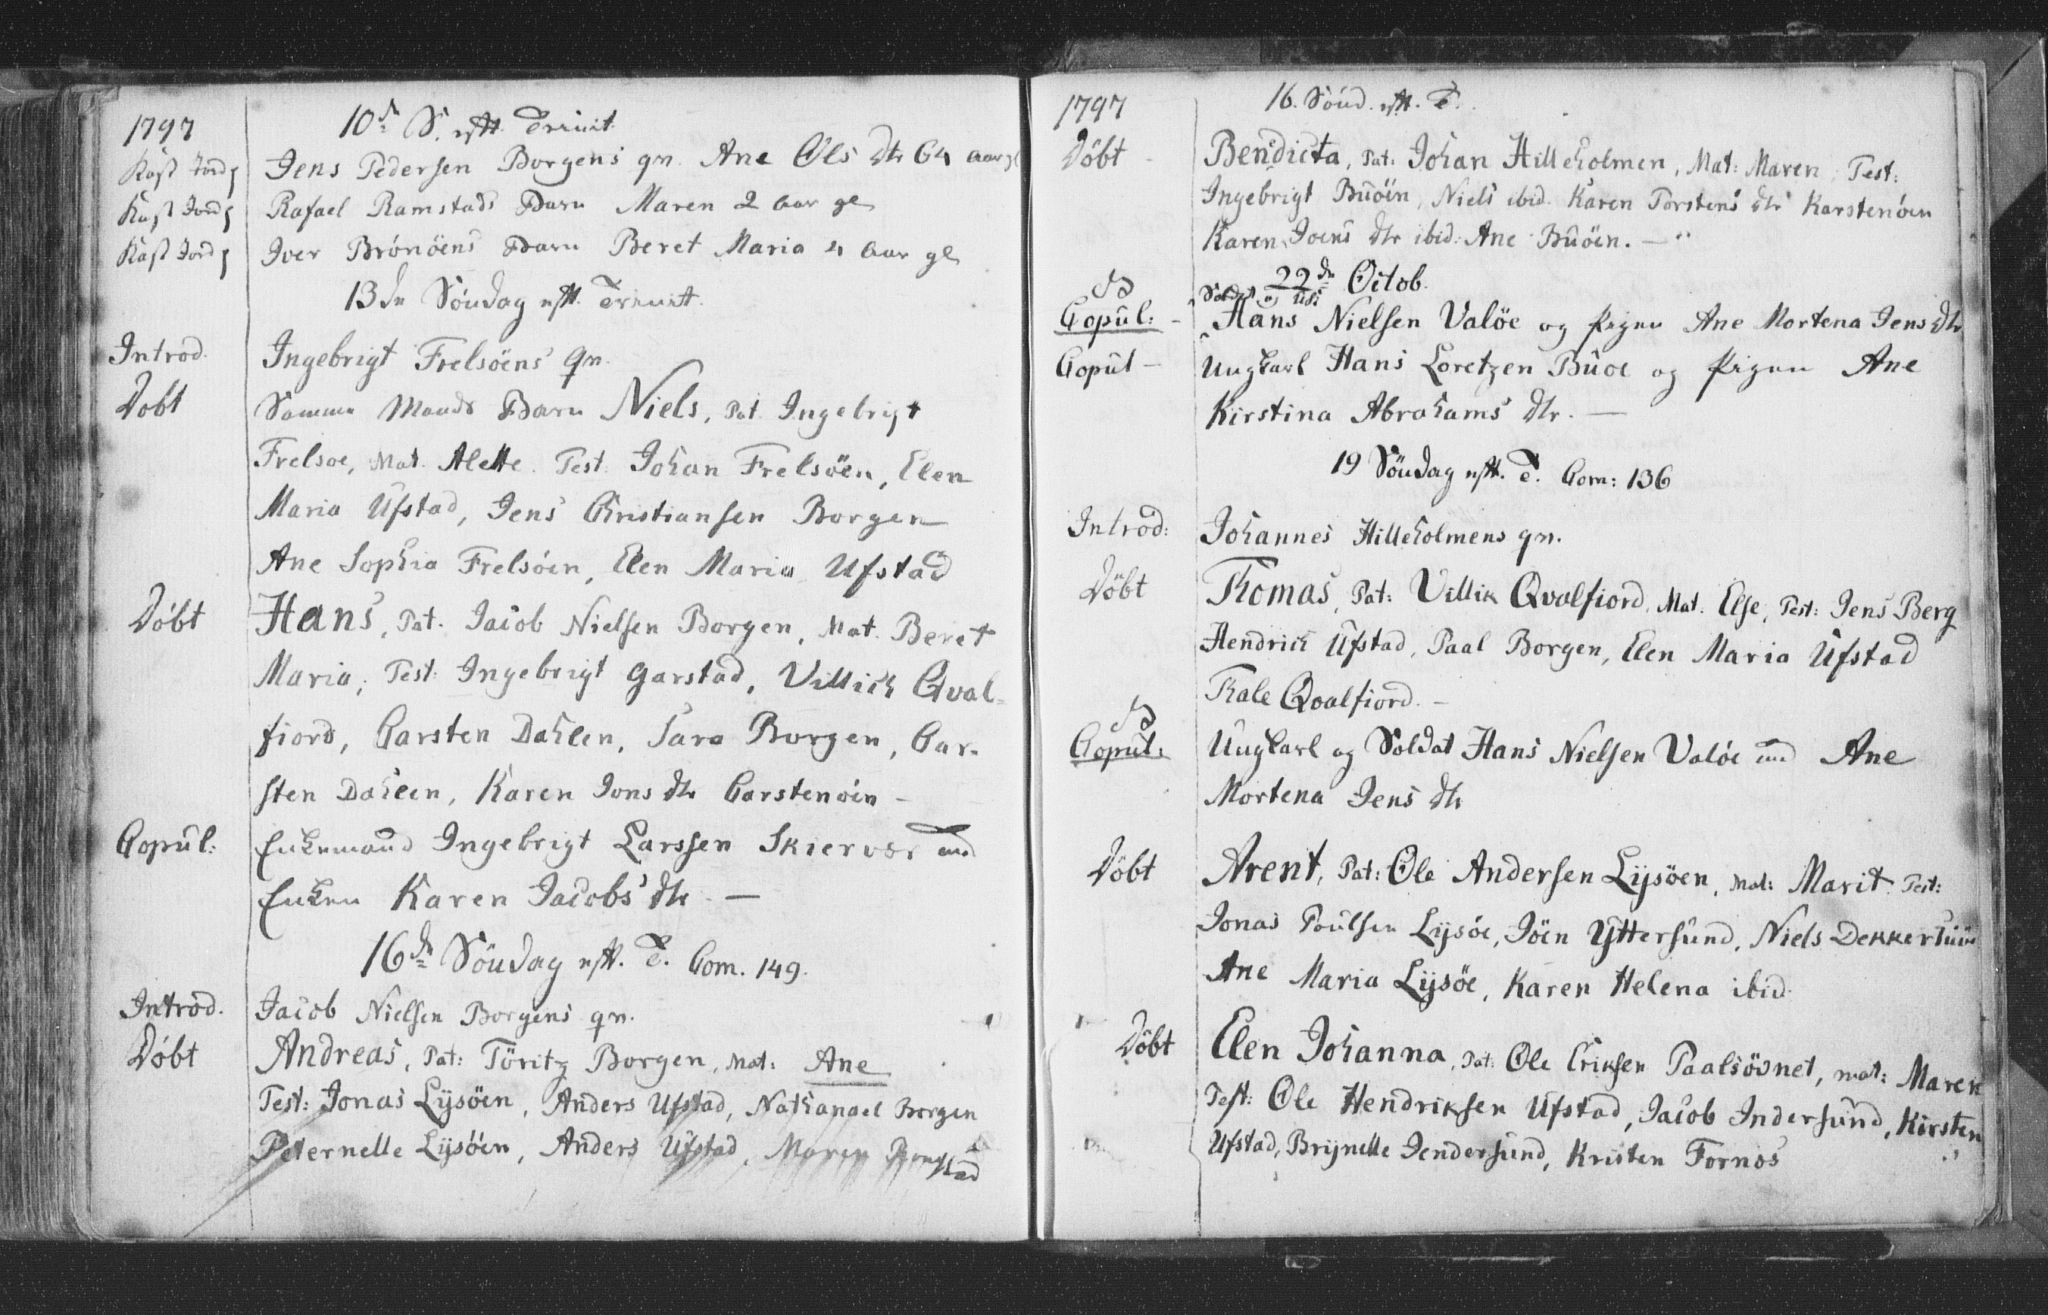 1797
10de S. eftr. Trinit.
Kast Jord Jens Pedersen Borgens qv. Ane Ols dtr 64 aar gl
Kast Jord Rafael Ramstads Barn Maren 2 aar gl
Kast Jord Iver Brönöens Barn Beret Maria 4 aar gl
13de Söndag eftr. Trinit.
Introd. Ingebrigt Frelsöens qv.
Döbt Samme Mands Barn Niels, Pat. Ingebrigt
Frelsoe, Mat. Alette. Test. Johan Frelsöen, Elen
Maria Ufstad, Jens Christiansen Borgen
Ane Sophia Frelsöen, Elen Maria Ufstad
Döbt Hans, Pat. Jacob Nielsen Borgen, Mat. Beret
Maria, Test: Ingebrigt Garstad, Villich Qval-
fiord, Carsten Dahlen, Sara Borgen, Car-
sten Dahlen, Karen Jons dtr Carstenöen –
Copul: Enkemand Ingebrigt Larssen Skiervær med
Enken Karen Jacobs dtr. —
16de Söndag eftr. T. Com. 149.
Introd. Jacob Nielsen Borgens qv.
Döbt Andreas, Pat: Töritz Borgen, Mat: Ane
Test: Jonas Lysöen, Anders Ufstad, Nathanael Borgen
Peternelle Lysöen, Anders Ufstad, Maren Ramstad
1797
16. Sönd. eftr. T.
Döbt – Bendicta, Pat: Johan Hilleholmen, Mat: Maren, Test:
Ingebrigt Buöen, Niels ibid. Karen Torstens dtr Karstenöen
Karen Joens dtr ibid: Ane Buöen. —
22de Octob.
Copul: – Hans Nielsen Valöe og Pigen Ane Mortena Jens dtr
Copul – Ungkarl Hans Loretzen Buoe og Pigen Ane
Kirstina Abrahams dtr. —
19 Söndag eftr. T. Com: 136
Introd: Johannes Hilleholmens qv.
Döbt Thomas, Pat: Villik Qvalfiord, Mat. Else, Test: Jens Berg
Hendrich Ufstad, Paal Borgen, Elen Maria Ufstad
Thale Qvalfiord. –
Copul: Ungkarl og Soldat Hans Nielsen Valöe med Ane
Mortena Jens dtr
Döbt Arent, Pat: Ole Andersen Lysöen, Mat: Marit. Test:
Jonas Poulsen Lysöe, Jöen Yttersund, Niels
Ane Maria Lysöe, Karen Helena ibid.
Döbt Elen Johanna, Pat: Ole Eriksen Paalsövnet, mat: Maren
Test: Ole Hendriksen Ufstad, Jacob Indersund, Kirsten
Ufstad, Brynelle Jendersund, Kristen Fornæs